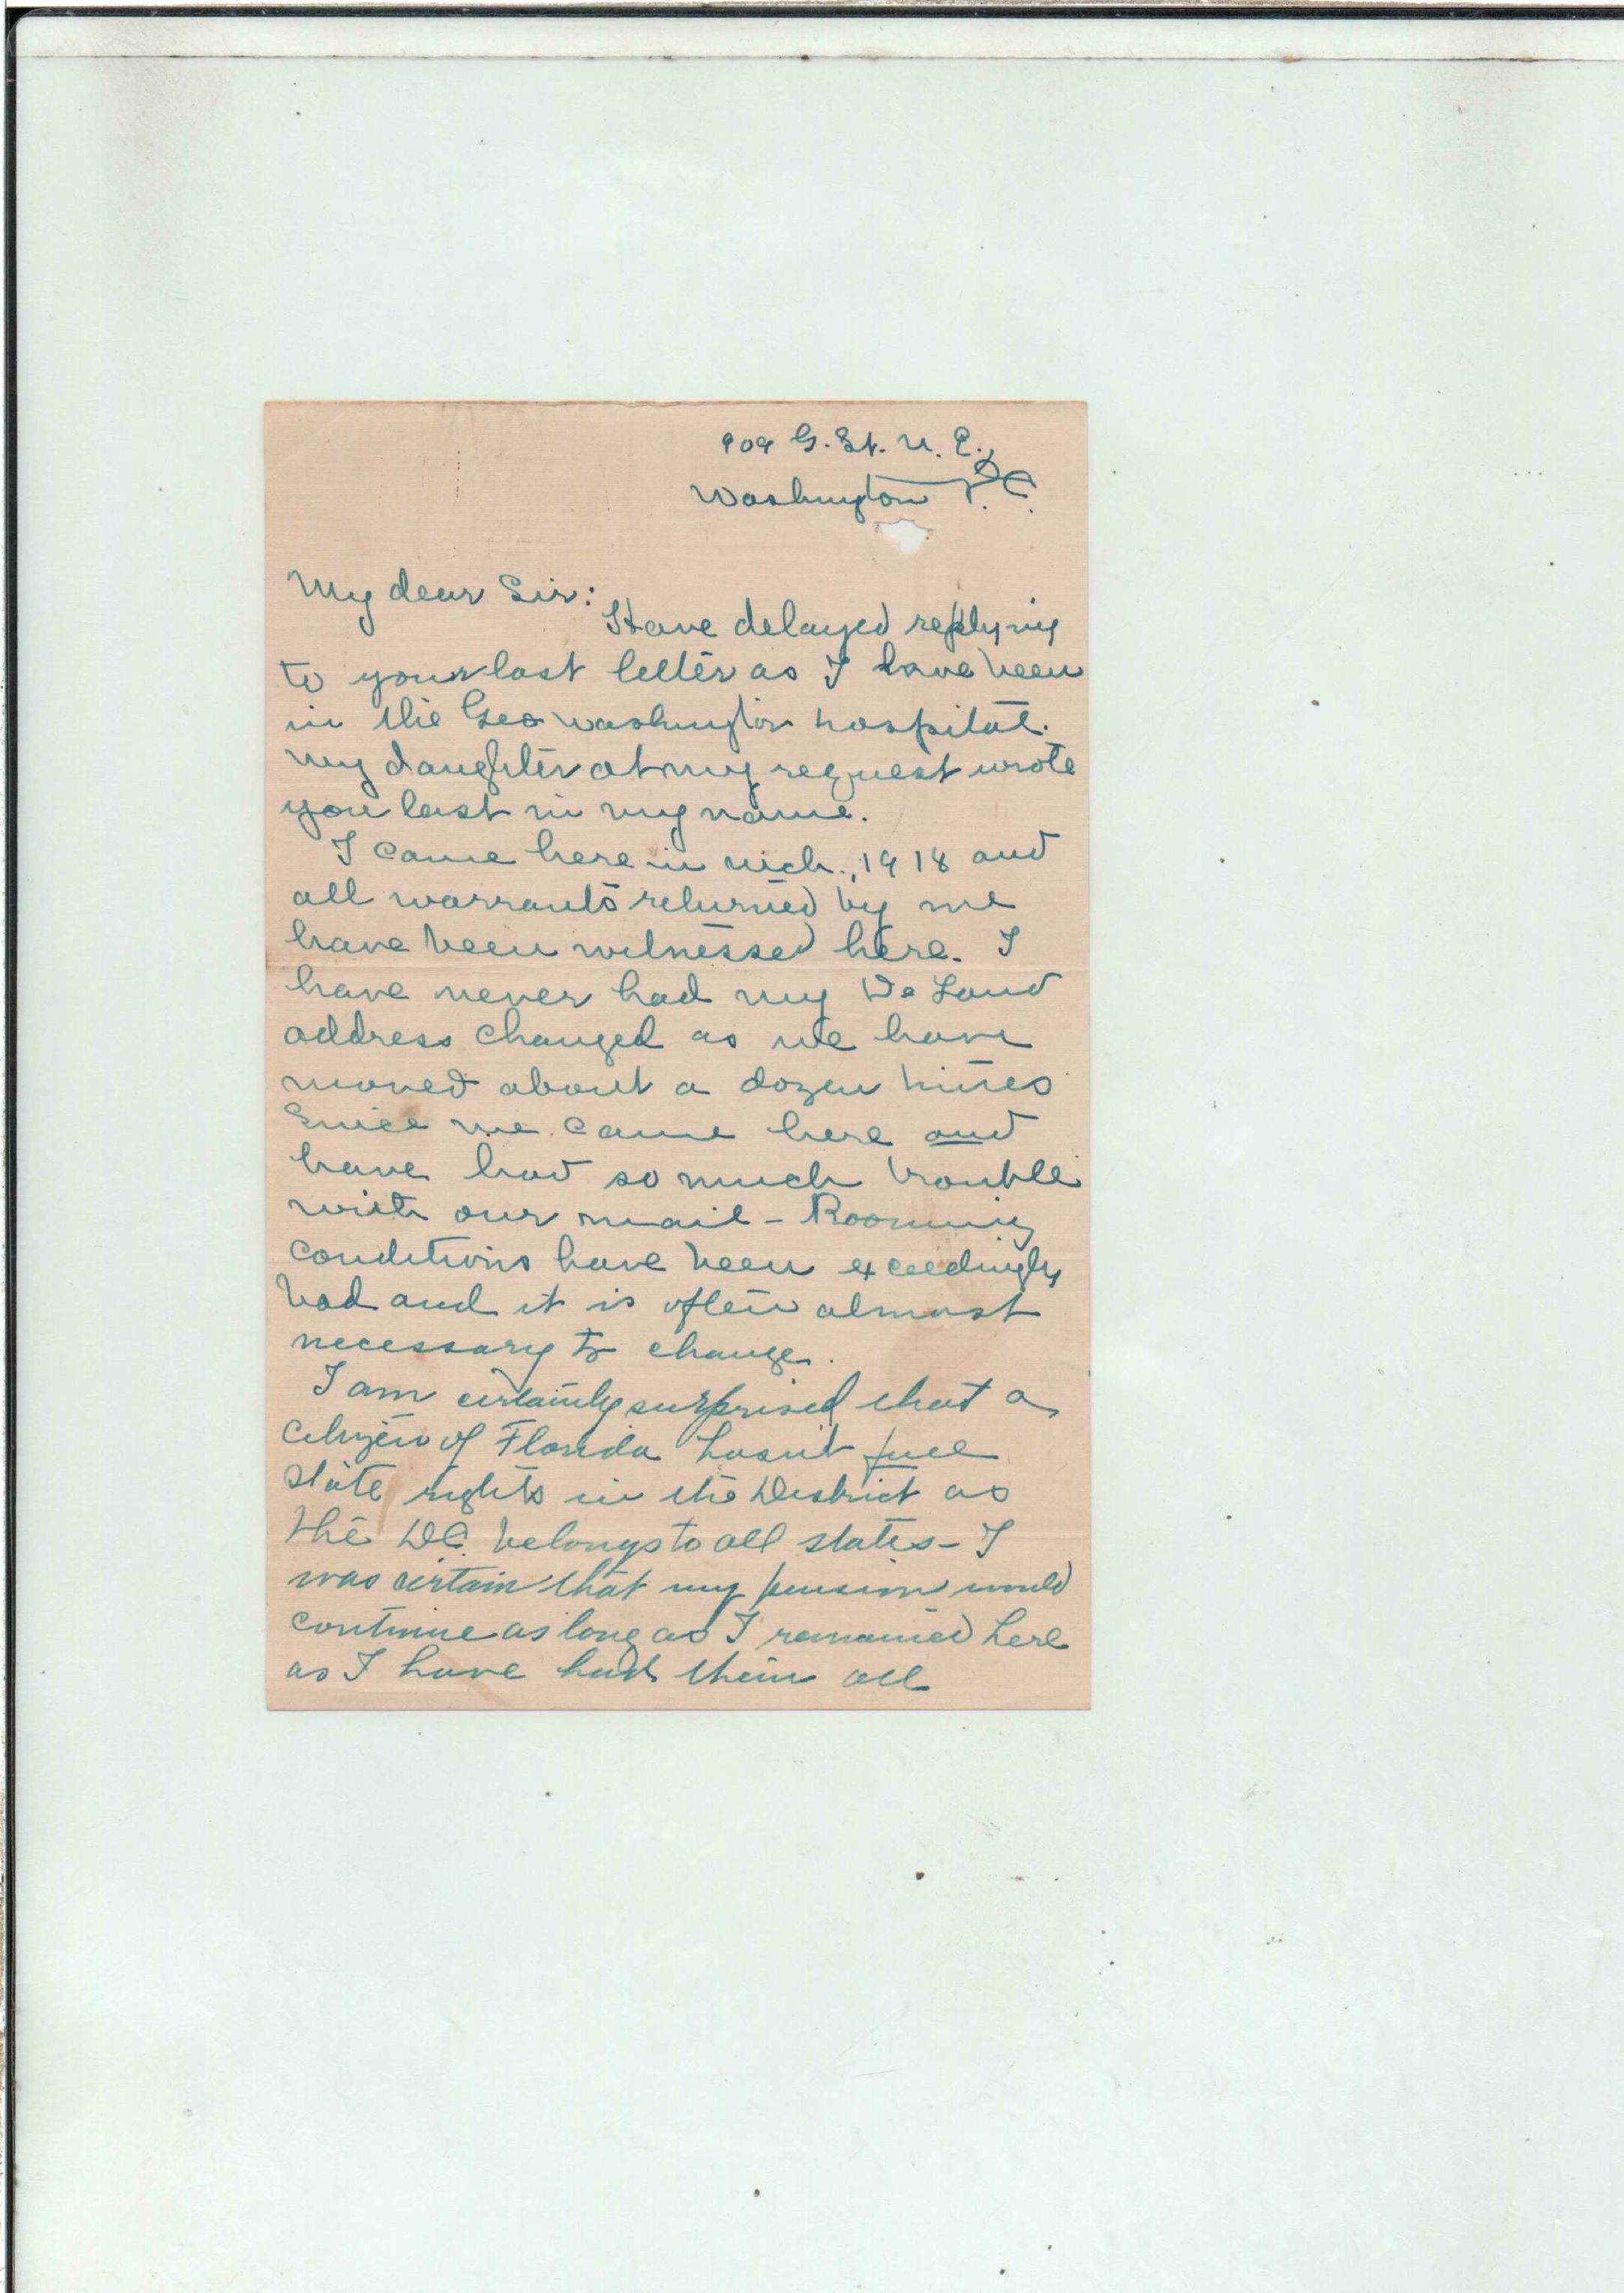 909 G. St. N. E.,
Washington D.C.
My dear Sir:
Have delayed replying
to your last letter as I have been
in the Geo Washington hospital.
My daughter at my request wrote
you last in my name.
I came here in Mch., 1918 and
all warrants returned by me
have been witnessed here. I
have never had my De Land
address changed as we have
moved about a dozen times
since we came here and
have had so much trouble
with our mail - Rooming
conditions have been exceedingly
bad and it is often almost
necessary to change.
I am certainly surprised that a
citizen of Florida hasn't full
state rights in the District as
the DC. belongs to all states - I
was certain that my pension would
continue as long as I remained here
as I have had them all